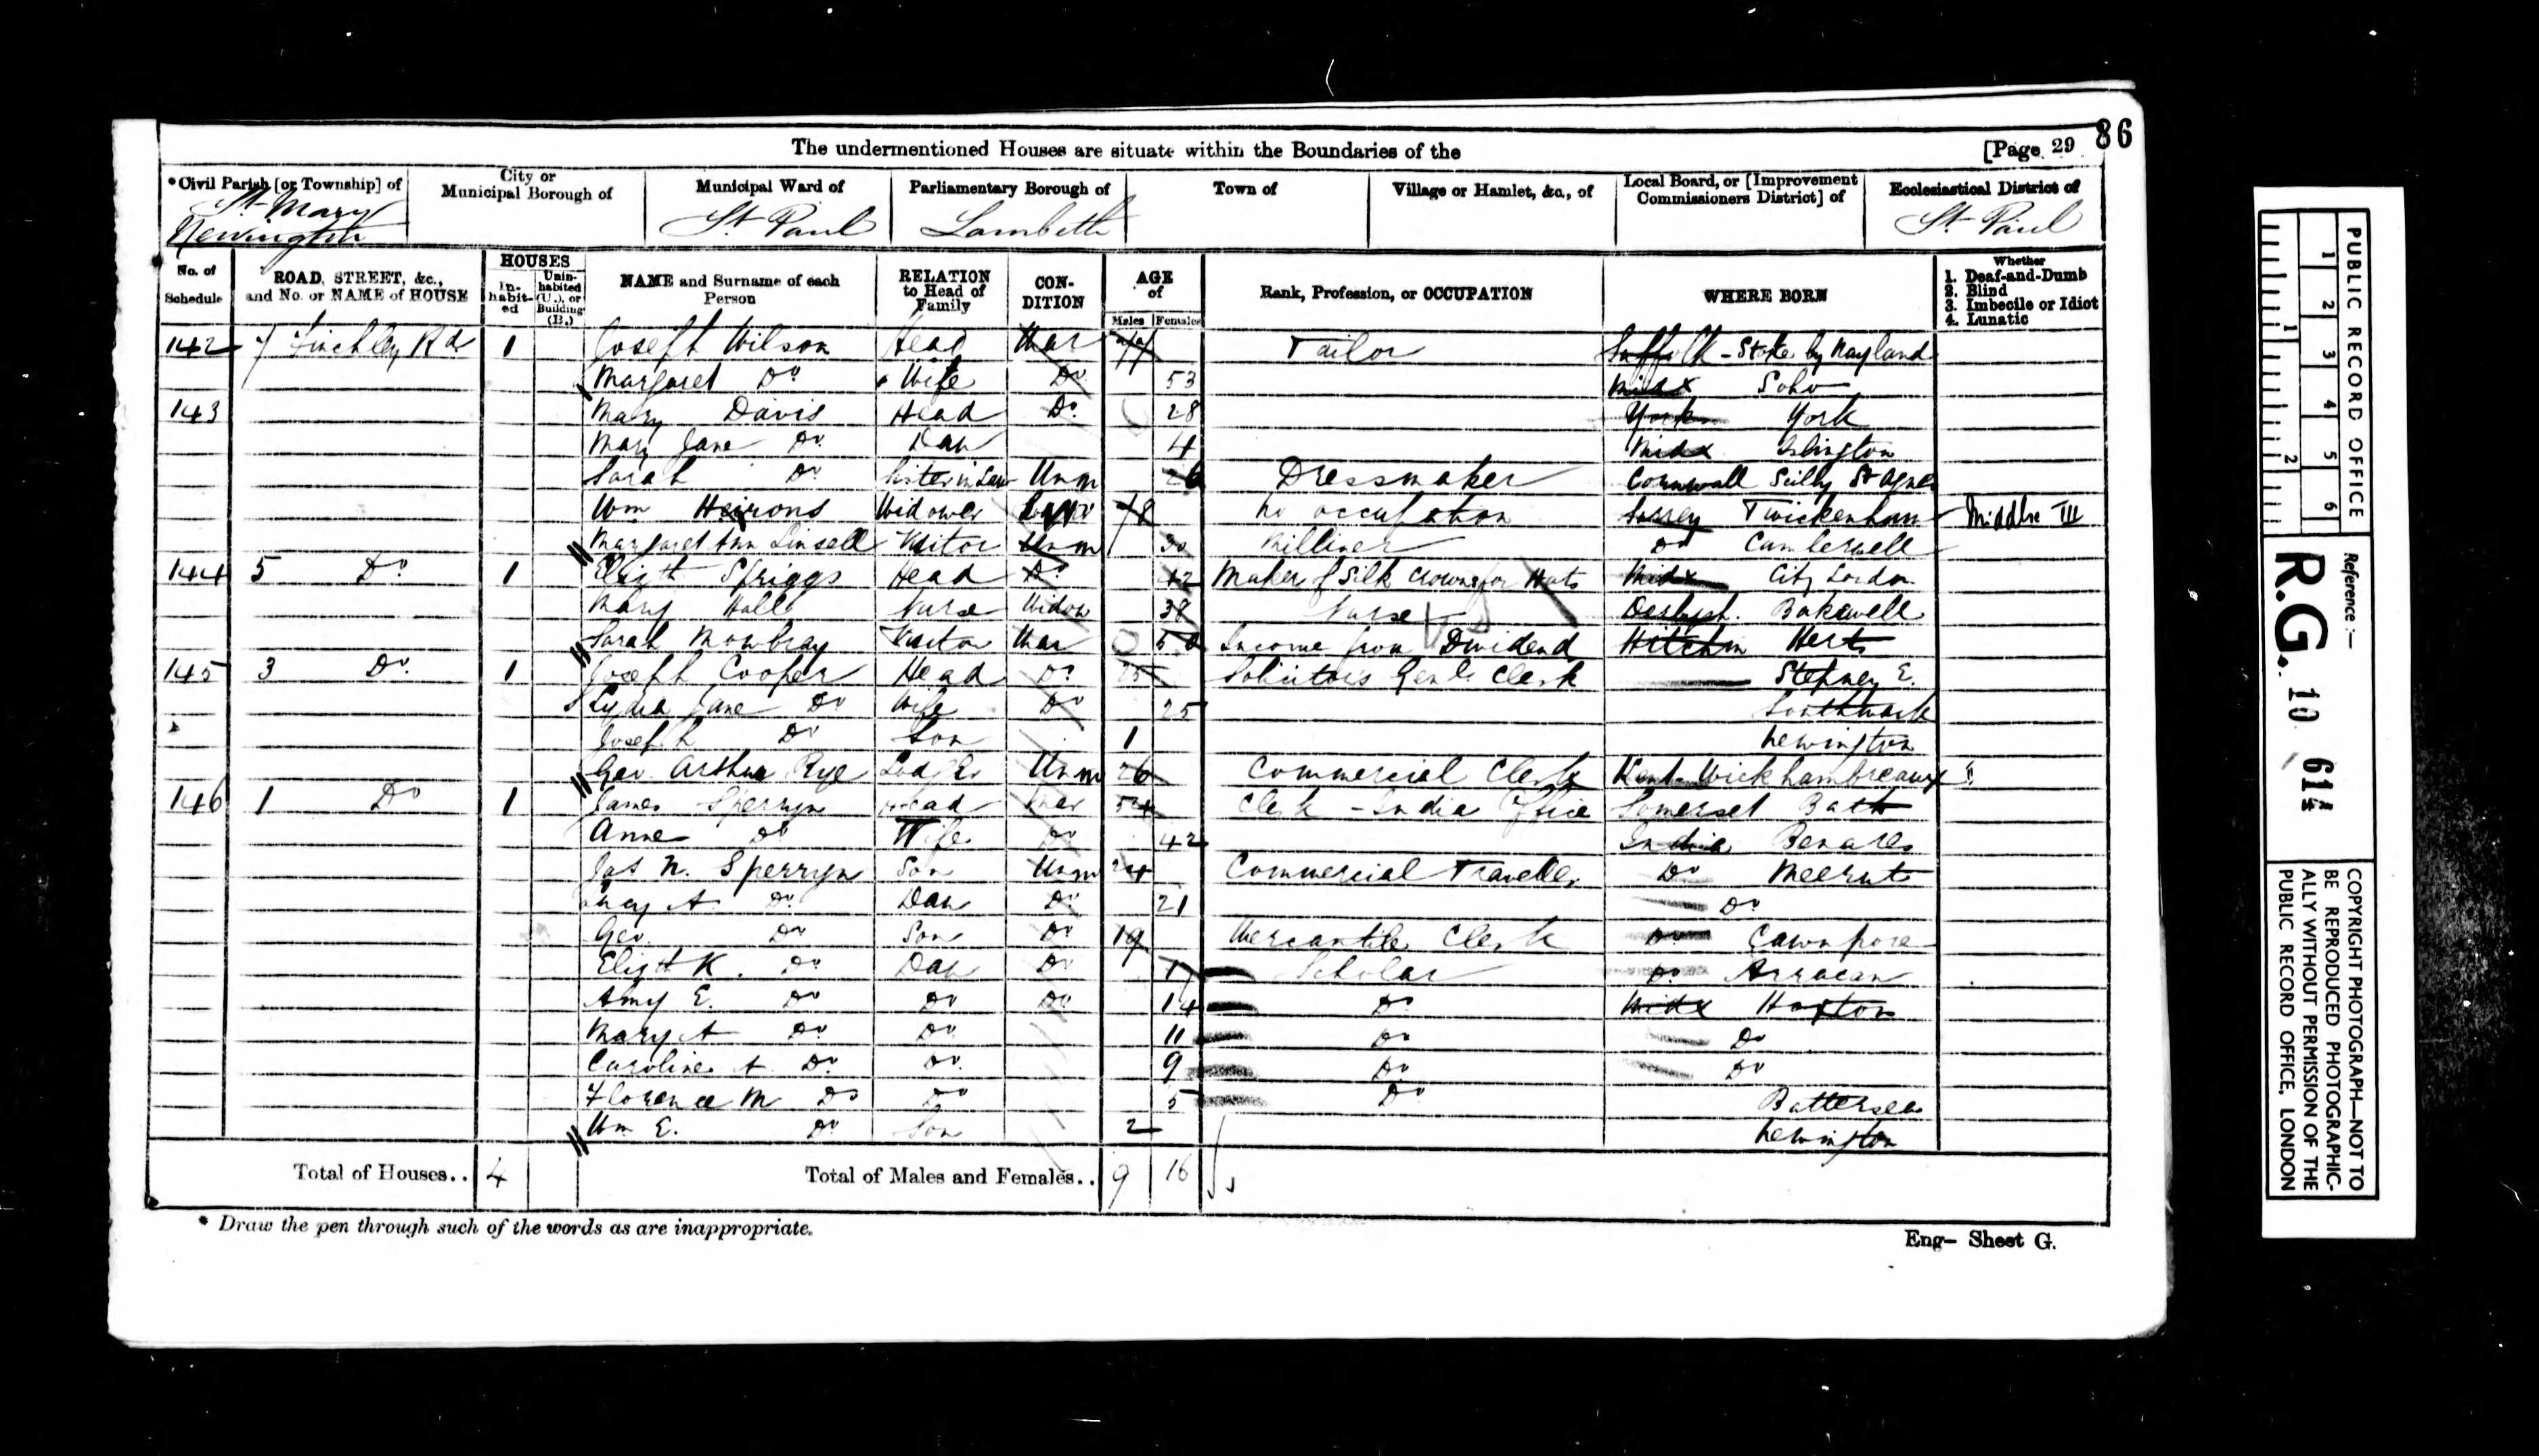 86
The undermentioned Houses are situate within the Boundaries of the [Page 29
*Civil Parish [or Township] of City or Municipal Borough of Municipal Ward of Parliamentary Borough of Town of Village or Hamlet, &c., of Local Board, or [Improvement Commissioners District] of Ecclesiastical District of
St. Mary Newington St. Paul Lambeth St. Paul
No. of Schedule ROAD, STREET, &c., and No. or NAME of HOUSE HOUSES In-habit-ed Unin-habited (U.), or Building (B.) NAME and Surname of each Person RELATION to Head of Family CON-DITION AGE of Males Females Rank, Profession, or OCCUPATION WHERE BORN Whether 1. Deaf-and-Dumb 2. Blind 3. Imbecile or Idiot 4. Lunatic
142 7 Finchley Rd 1 Joseph Wilson Head Mar Tailor Suffolk - Stoke by Nayland
Margaret Do Wife Do 53 Midx Soho
143 Mary Davis Head Do 28 York York
Mary Jane Do Dau 4 Midx Islington
Sarah Do Sister in Law Unm 26 Dressmaker Cornwall Scilly St Agnes
Wm Heirons Widower 78 No occupation Surrey Twickenham Middlx III
Margaret Ann Linsell Visitor Unm Milliner Do Camberwell
144 5 Do 1 Elizth Spriggs Head Do 42 Maker of Silk Crowns for Hats Midx City London
Mary Hall Nurse Widow 38 Nurse Derbysh. Bakewell
Sarah Mowbray Visitor Mar Income from Dividend Hitchin Herts
145 3 Do 1 Joseph Cooper Head Do 25 Solicitors Genl. Clerk Stepney E.
Lydia Jane Do Wife Do 25 Southwark
Joseph Do Son 1 Newington
Geo Arthur Rye Lodger Unm 26 Commercial Clerk Kent Wickhambreaux
146 1 Do 1 James Sperryn Head Mar 54 Clerk - India Office Somerset Bath
Anne Do Wife Do 42 India Benares
Jas N. Sperryn Son Unm 24 Commercial Traveller Do Meerut
Lucy A Do Dau Do 21 Do
Geo. Do Son Do 19 Mercantile Clerk Do Cawnpore
Elizth K. Do Dau Do 17 Scholar Do Arracan
Amy E. Do Do Do 14 Do Midx Hoxton
Mary A Do Do 11 Do Do
Caroline A Do Do 9 Do Do
Florence M Do Do 5 Do Battersea
Wm E. Do Son 2 Newington
Total of Houses.. 4 Total of Males and Females.. 9 16
* Draw the pen through such of the words as are inappropriate.
Eng- Sheet G.
PUBLIC RECORD OFFICE
1 2 3 4 5 6
1 2
Reference :-
R.G. 10 614
COPYRIGHT PHOTOGRAPH—NOT TO
BE REPRODUCED PHOTOGRAPHIC-
ALLY WITHOUT PERMISSION OF THE
PUBLIC RECORD OFFICE, LONDON